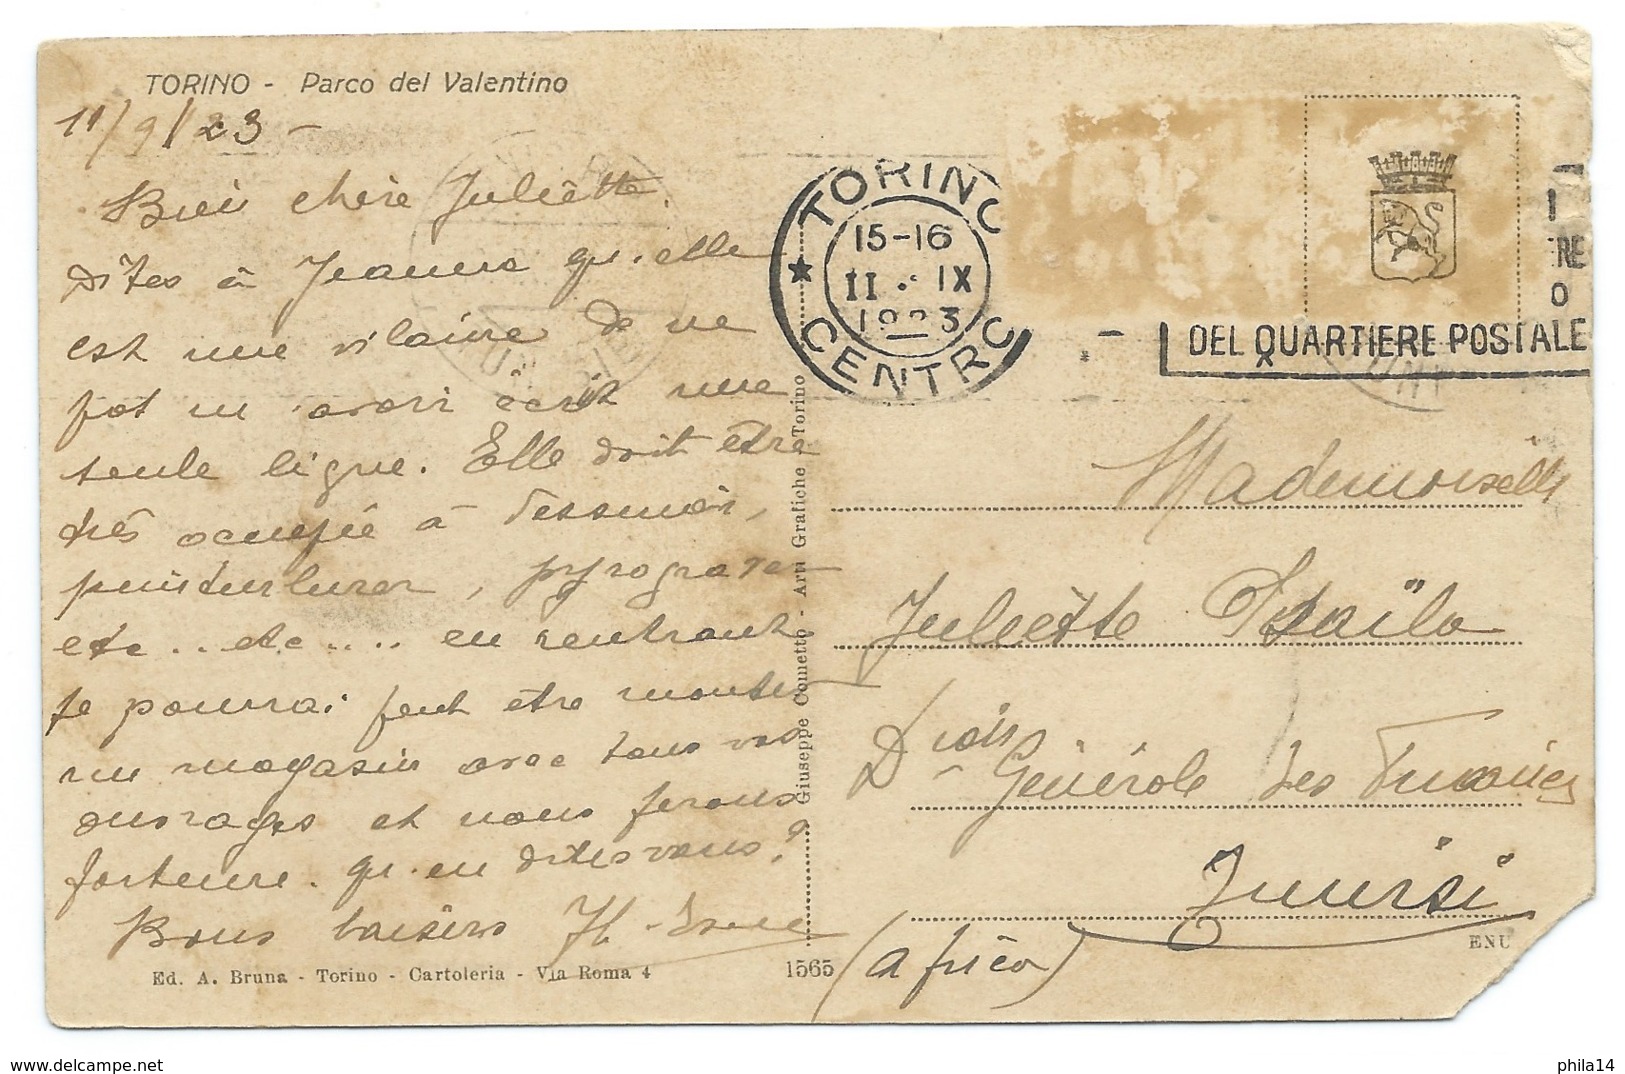 TORINO - Parco del Valentino
11/9/23 -
Bien chère Juliette
dites à Jeanne qu'elle
est une vilaine de ne
pas m'avoir écrit une
seule ligne. Elle doit être
très occupée à dessiner,
peinturlurer, pyrograver
etc .. etc .... en rentrant
je pourrai peut être monter
un magasin avec tous vos
ouvrages et nous ferons
fortune. qu'en dites vous?
Bons baisers
Ed. A. Bruna - Torino - Cartoleria - Via Roma 4
1565
Giuseppe Cometto - Arti Grafiche - Torino
TORINO
15-16
11 · IX
1923
CENTRO
DEL QUARTIERE POSTALE
Mademoiselle
Juliette
Don Générale des Finances
Tunisi
(Africa)
ENU
phila14
www.delcampe.net